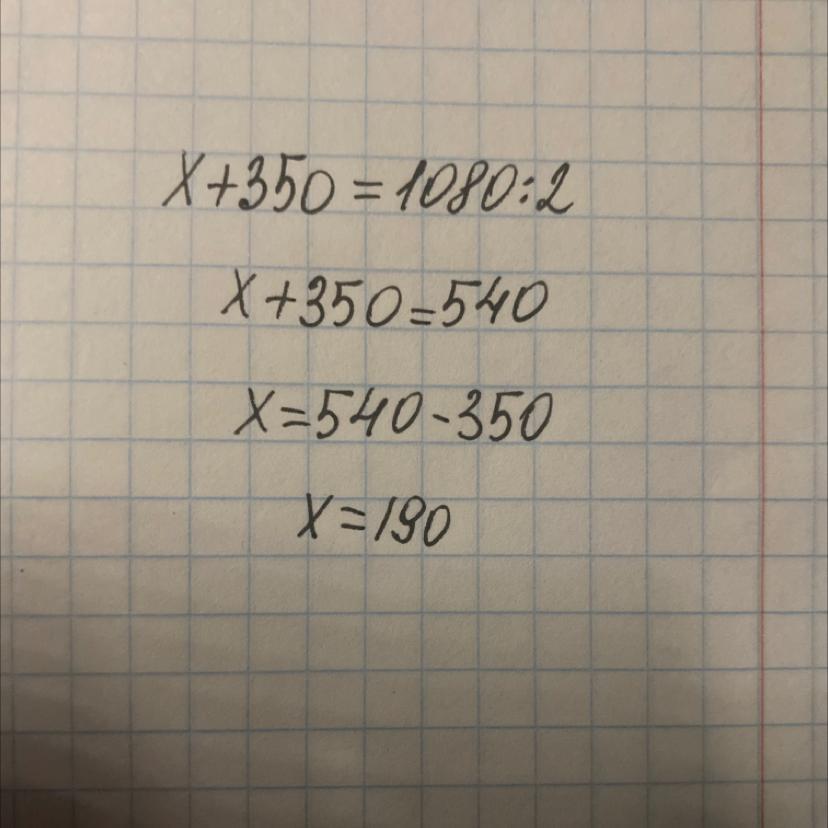 x+350=1080:2
x+350=540
x=540-350
x=190